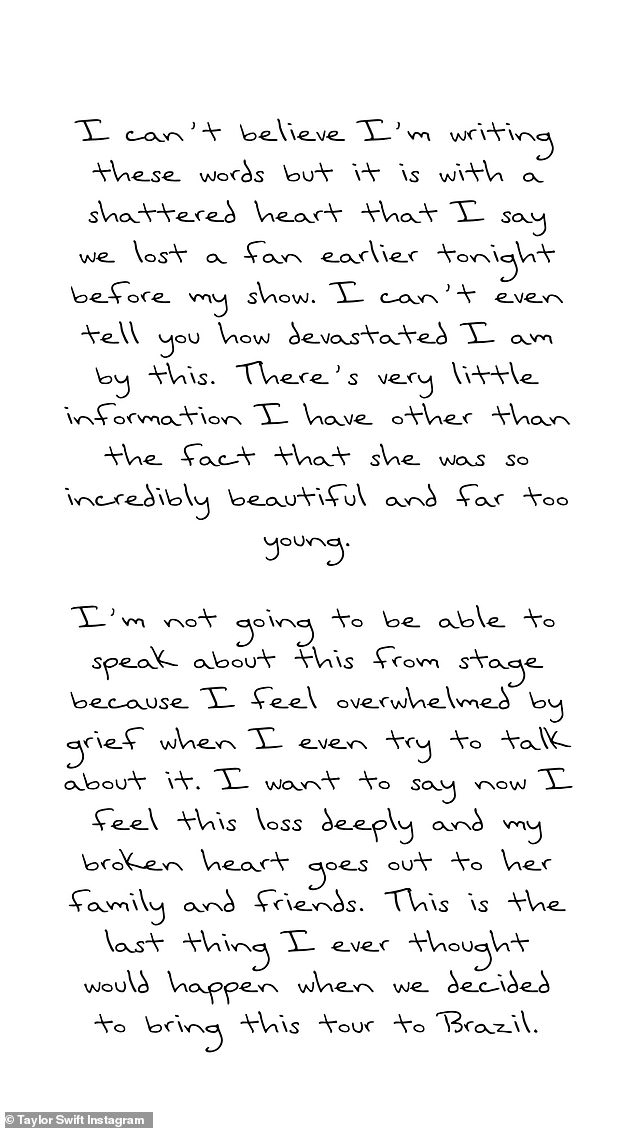 I can't believe I'm writing
these words but it is with a
shattered heart that I say
we lost a fan earlier tonight
before my show. I can't even
tell you how devastated I am
by this. There's very little
information I have other than
the fact that she was so
incredibly beautiful and far too
young.
I'm not going to be able to
speak about this from stage
because I feel overwhelmed by
grief when I even try to talk
about it. I want to say now I
feel this loss deeply and my
broken heart goes out to her
family and friends. This is the
last thing I ever thought
would happen when we decided
to bring this tour to Brazil.
© Taylor Swift Instagram